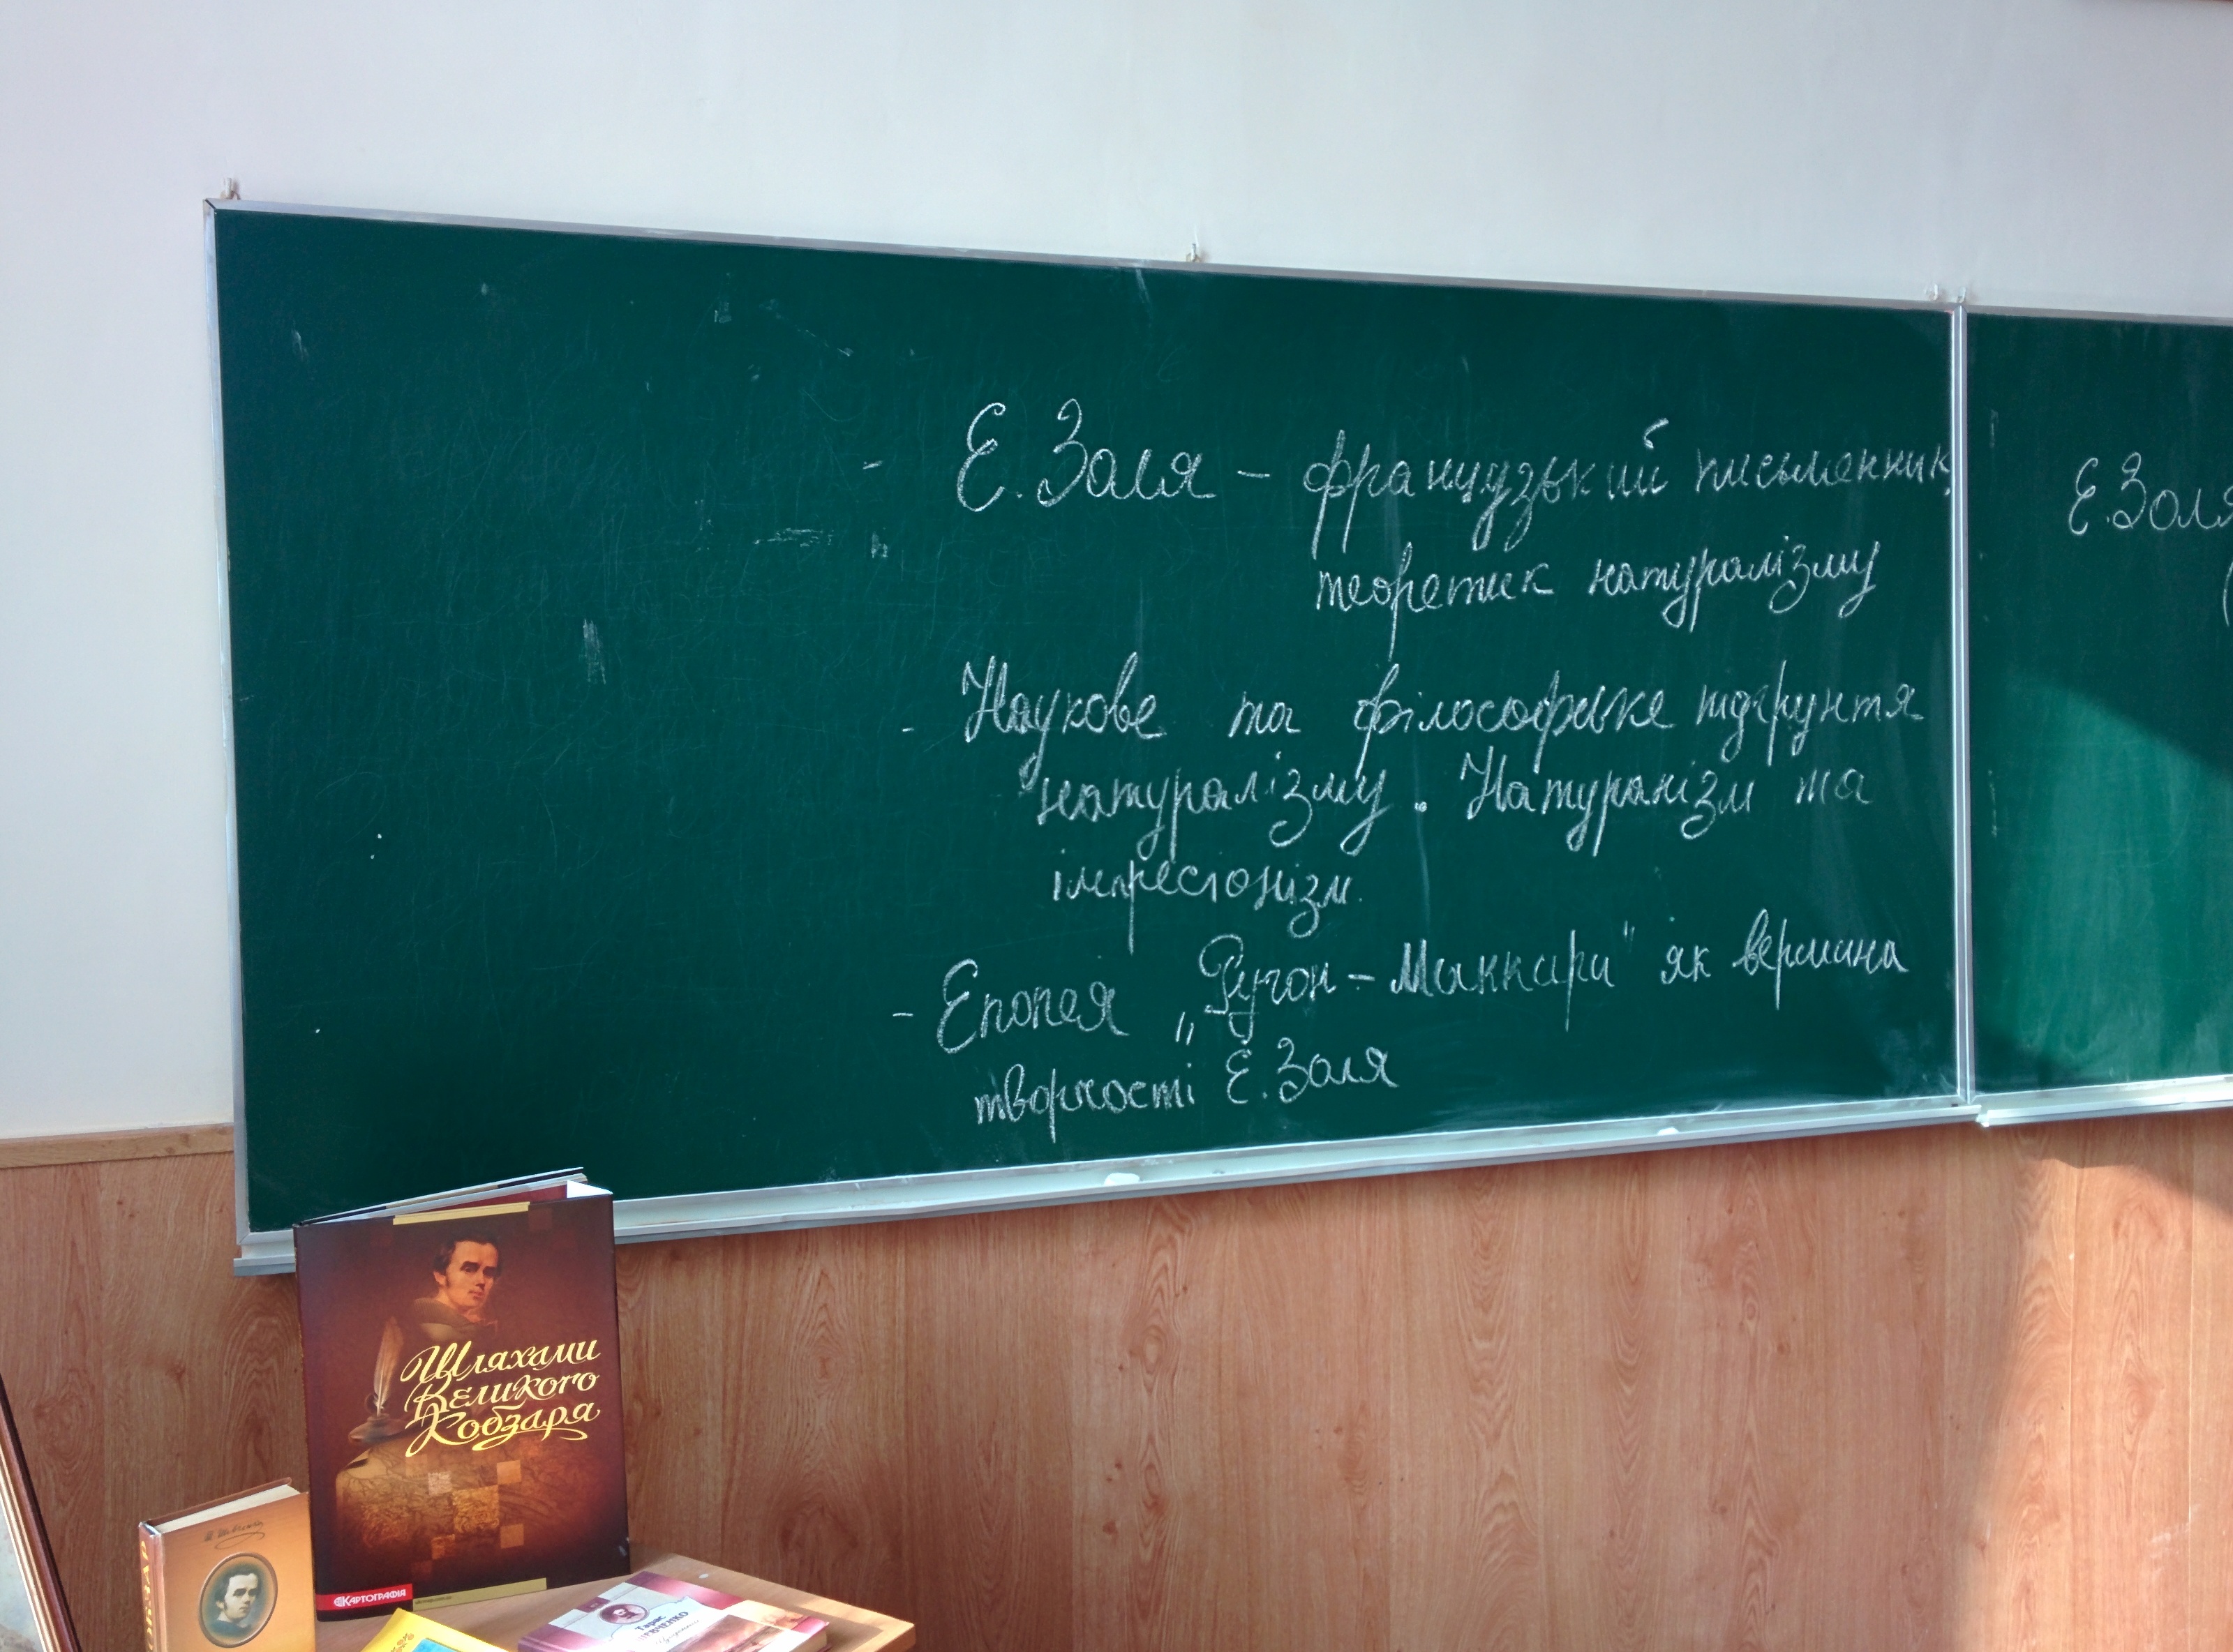 - Е. Золя - французький письменник,
теоретик натуралізму
- Наукове та філософське підґрунтя
натуралізму. Натуралізм та
імпресіонізм.
- Епопея „Ругон - Маккари" як вершина
творчості Е. Золя
Е. Золя
(
Шляхами
Великого
Кобзаря
КАРТОГРАФІЯ
Тарас